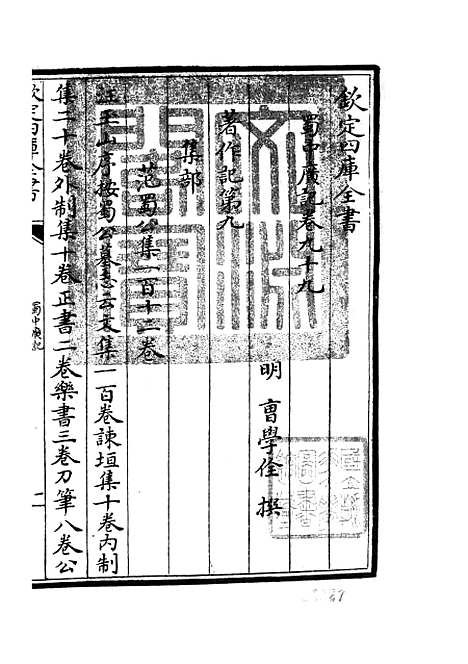 欽定四庫全書
蜀中廣記卷九十九
明 曹學佺 撰
著作記第九
集部
范蜀公集一百十二卷
汪玉山序按蜀公墓誌文集一百卷諫垣集十卷內制
集二十卷外制集十卷正書二卷樂書三卷刀筆八卷公
欽定四庫全書
蜀中廣記